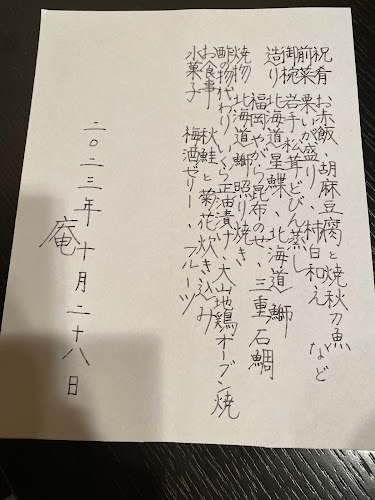 祝肴 お赤飯、胡麻豆腐と焼秋刀魚
前菜 栗いが盛り、柿白和え など
御椀 岩手松茸どびん蒸し
造り 北海道星鰈、北海道鰤
福岡やがら昆布のせ、三重石鯛
焼物 北海道鰤照り焼き
酢の物代わり いくら正油漬け、大山地鶏オーブン焼
お食事 秋鮭と菊花炊き込み
水菓子 梅酒ゼリー、フルーツ
二〇二三年十月二十八日
庵